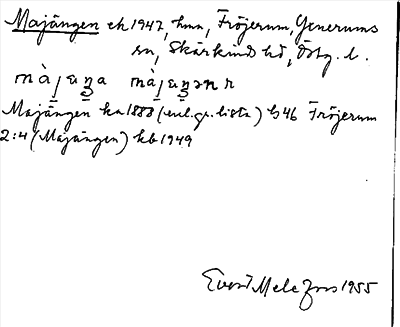 Majängen ek 1947, hmn, Fröjerum, Yxnerums
sn, Skärkind hd, Östg. l.
màjæŋa màjæŋən r
Majängen ka 1888 (enl. gr. lista) b 46 Fröjerum
2:4 (Majängen) kb 1949
Evert Melefors 1955